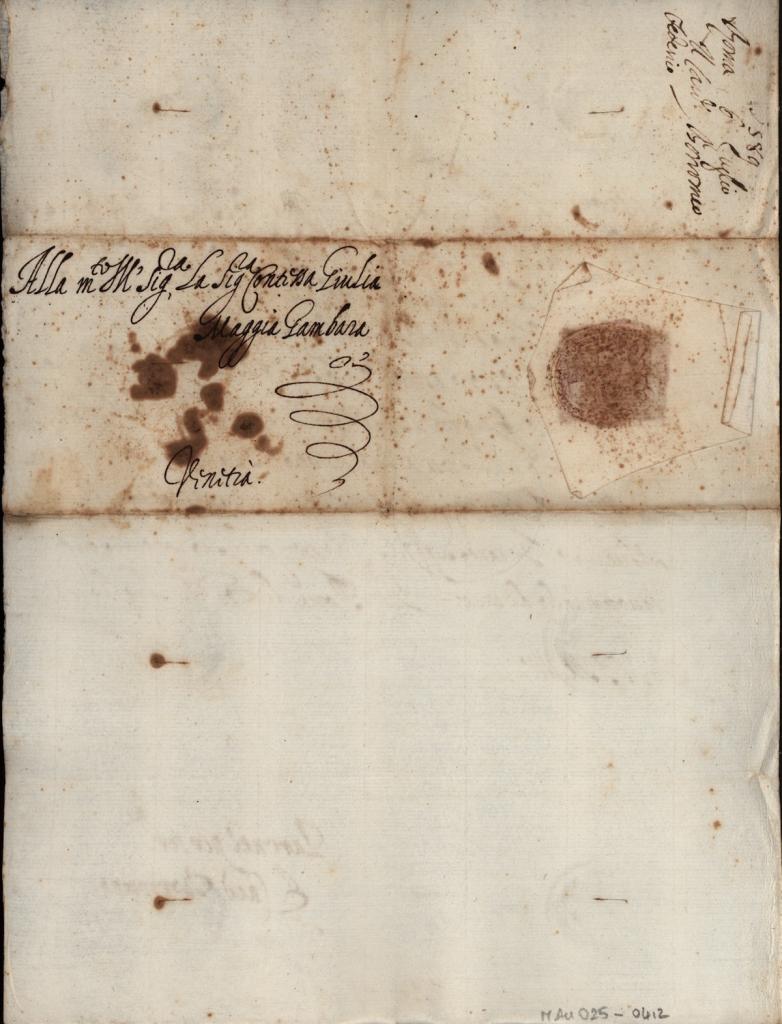 1589
Roma 6 Luglio
Il Card.l Borromeo
Federico
Alla m.to Ill.re Sig.ra La Sig.ra Contessa Giulia
Maggia Gambara
Venitia.
MAu 025 - 0412